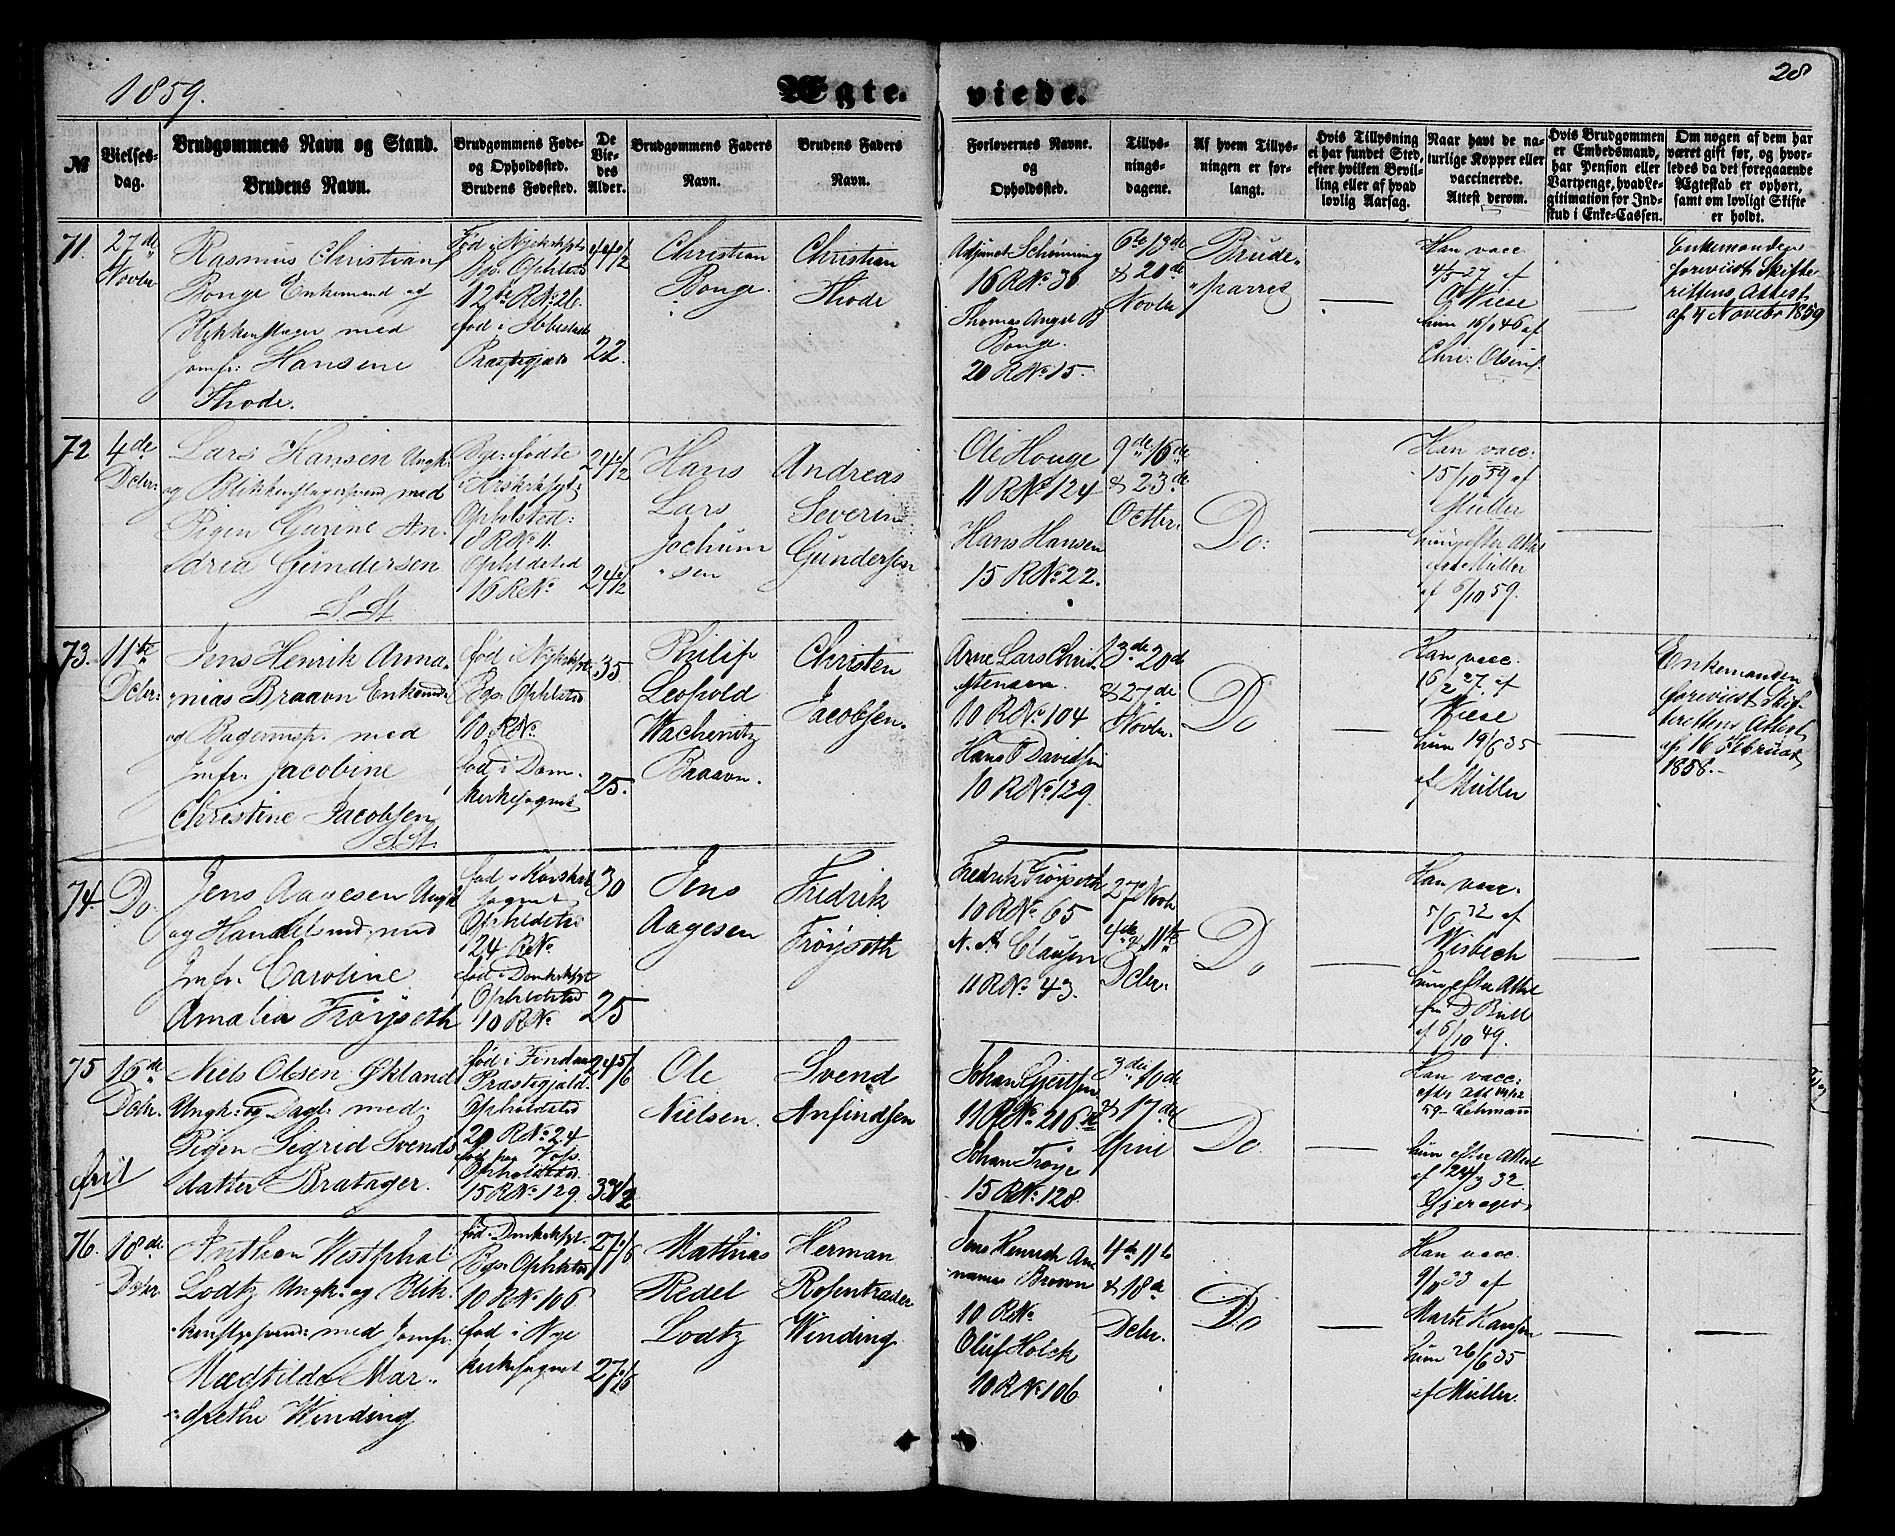 1859.
Ægte-
viede.
28
№
Vielses-
dag.
Brudgommens Navn og Stand.
Brudens Navn.
Brudgommens Føde-
og Opholdssted.
Brudens Fødested.
De
Vie-
des
Alder.
Brudgommens Faders
Navn.
Brudens Faders
Navn.
Forlovernes Navne.
og
Opholdssted.
Tillys-
nings-
dagene.
Af hvem Tillys-
ningen er for-
langt.
Hvis Tillysning
ei har fundet Sted,
efter hvilken Bevil-
ling eller af hvad
lovlig Aarsag.
Naar havt de na-
turlige Kopper eller
vaccinerede.
Attest derom.
Hvis Brudgommen
er Embedsmand,
har Pension eller
Vartpenge, hvad Le-
gitimation for Ind-
skud i Enke-Cassen.
Om nogen af dem har
været gift før, og hvor-
ledes da det foregaaende
Ægteskab er ophørt,
samt om lovligt Skifte
er holdt.
71.
27de
Novbr
Rasmus Christian
Ronge Enkemand og
med
Jomfr: Hansine
Thode.
12te R No 26
22.
Christian
Ronge.
Christian
Thode
Adjunct Schønning
16 R No 36
Thomas Angel B
Ronge.
20 R No 15.
& 20de
Novbr
Brude-
parret
Han vacc
4/5 27 af
Wiese
hun 16/9 46 af
Chri: Olsen
Enkemanden
foreviist Skifte
rettens Attest
af 4 Novebr 1859
72
4de
Dcbr:
Lars Hansen Ungk:
og Blikkenslagersvend med
Pigen Gurine An-
drea Gundersen
8 R No 11.
16 R No
24 1/2
24 1/2
Hans
Lars
Jochum
sen
Andreas
Severin
Gundersen
Ole Houge
11 R No 124
Hans Hansen
15 R No 22.
9de 16de
& 23de
Octbr.
Do:
Han vacc:
15/10 59 af
Müller
hun efter Attest
fra Müller
af 6/10 59.
73.
11te
Dcbr:
Jens Henrik Anna-
nias Braavn Enkemd:
og Bagermstr. med
Jmfr. Jacobine
Christine Jacobsen
fød i Nykirksgt
Bgs. Ophldsted
10 R No
fød i Dom-
kirkesognet
35.
25.
Philip
Leopold
Wachenitz
Braavn.
Christen
Jacobsen.
Arne Lars Christ
stensen
10 R No 104
Hans P Davidsen
10 R No 129.
13de 20de
& 27de
Novbr.
Do
Han vacc.
16/2 27. af
Wiese
hun 19/6 35
af Müller
Enkemanden
foreviist Skif-
terettens Attest
af 16 Februar
1858.
74.
Do.
Jens Aagesen Ungk
og Handelsmd, med
Jmfr. Caroline
Amalia Frøyseth
fød i Korskirk
sognet
Opholdsted
24 R No
fød i Domkirksgt
Opholdsted
10 R No
30
25
Jens
Aagesen
Fredrik
Frøyseth
Fredrik Frøyseth
10 R No 65
N. A. Clausen
11 R No 43.
27 Novb
4de & 11te
Dcbr.
Do
Han vacc.
5/6 32 af
Wisbech
hun efter Attest
fra D Bull
af 6/10 49.
75
16de
Dcbr.
frit
Niels Olsen Økland
Ungk: og Dagl: med
Pigen Sigrid Svends
datter Bratager.
Præstegjæld.
Opholdsted
20 R No 24
15 R No 129.
24 5/6
Ole
Nielsen.
Svend
Anfindsen
Johan Gjertsen
11 R No 216
Johan Trøye
15 R No 128.
3die 10de
& 17de
Do.
Han vacc:
59 Lehmann
hun efter Attest
76.
18de
Dcbr
Anthon Westphal
Lodtz Ungk: og Blik
kenslgsvend med Jomfr.
Mægthilda Mar-
grethe Winding
fød i Domkirksgt.
Bgs. Ophldsted
10 R No 106
fød i Nye
kirkesognet
27 1/6
Mathias
Redel
Lodtz
Herman
Rosentræder
Winding
Jens Henrich An
nanias Braavn
10 R No
Oluf Holck
10 R No 106
4de 11te
& 18de
Dcbr.
Do
Han vacc.
Marte Hansen
hun 26/6 35
af Müller.